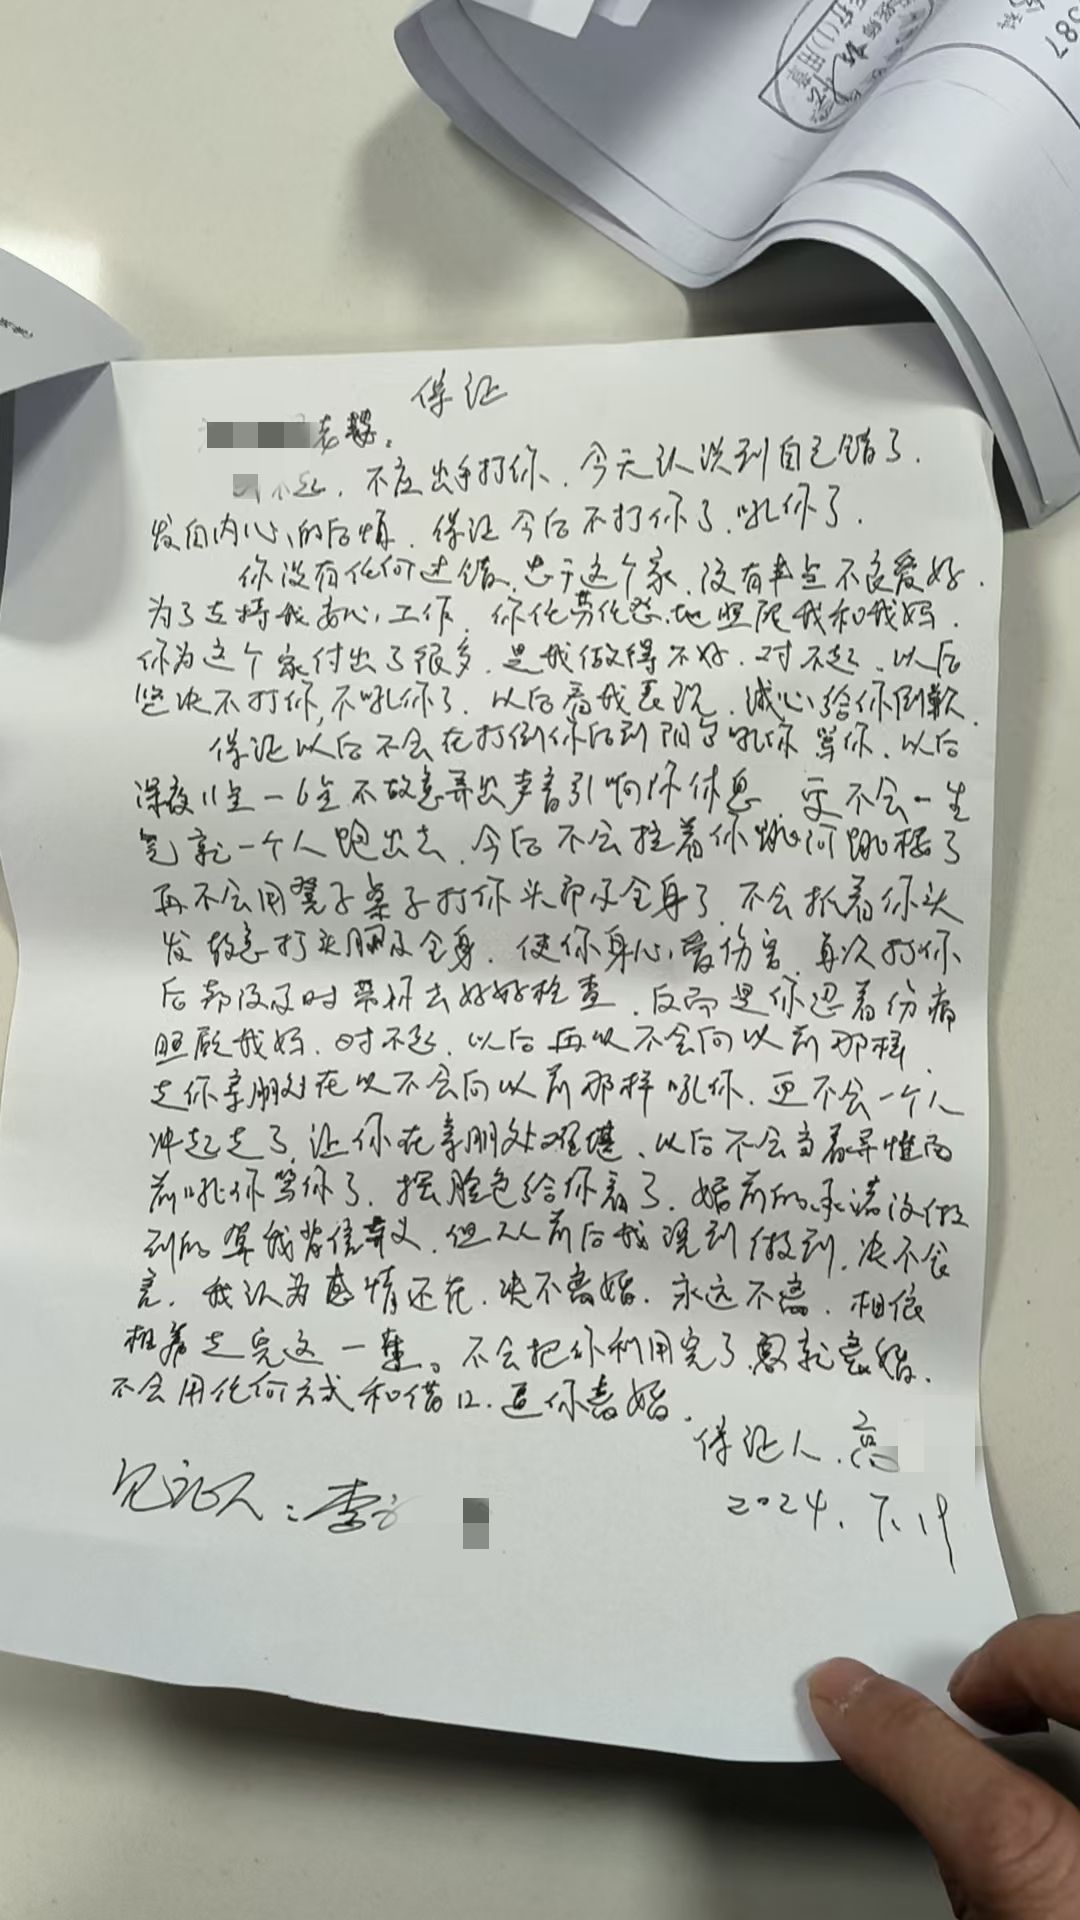 587
保证
老婆。
不起、不应出手打你、今天认识到自己错了.
发自内心的后悔、保证今后不打你了、吼你了.
你没有任何过错、忠于这个家、没有半点不良爱好.
为了支持我安心工作、你任劳任怨地照顾我和我妈.
你为这个家付出了很多、是我做得不好、对不起、以后
坚决不打你,不吼你了、以后看我表现、诚心给你倒歉.
保证以后不会在打倒你后到阳台吼你骂你、以后
深夜11点—6点不故意弄出声音引响你休息、更不会一生
气就一个人跑出去、今后不会拉着你跳河跳楼了
再不会用凳子桌子打你头部及全身了、不会抓着你头
发故意打头胸及全身、使你身心受伤害、每次打你
后都没及时带你去好好检查、反而是你忍着伤痛
照顾我妈、对不起、以后再以不会向以前那样
走你亲朋处在以不会向以前那样吼你、更不会一个人
冲起走了、让你在亲朋处难堪、以后不会当着异性面
前吼你骂你了、摆脸色给你看了、婚前的承诺没做
到的算我背信弃义、但从前后我说到做到、决不食
言、我认为感情还在、决不离婚、永远不离、相依
相靠走完这一辈。不会把你利用完了就离婚、
不会用任何方式和借口、逼你离婚.
保证人、高
见证人：李
2024.7.19